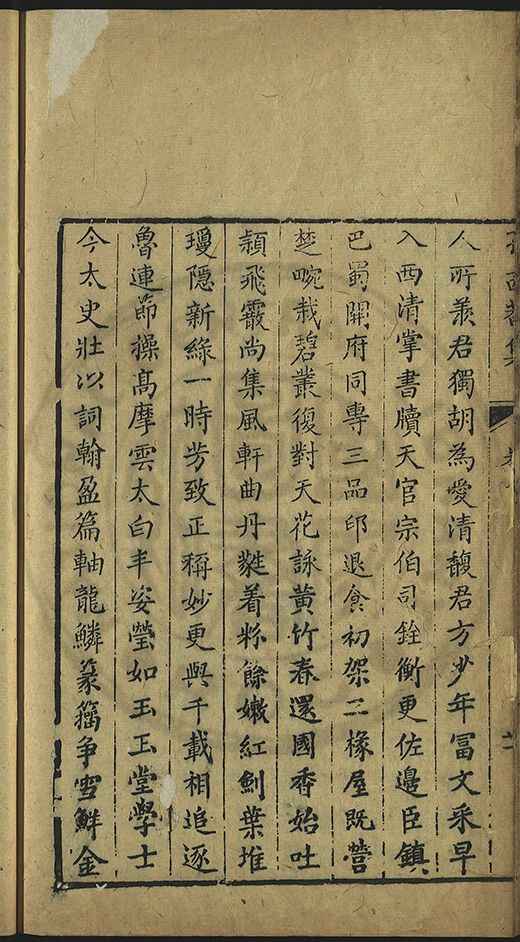 人所羨君獨胡為愛清馥君方少年富文采早
入西清掌書牘天官宗伯司銓衡更佐邊臣鎮
巴蜀開府同專三品印退食初架二椽屋既營
楚畹栽碧叢復對天花詠黃竹春還國香始吐
穎飛霰尚集風軒曲丹蕤着粉餘嫩紅劍葉堆
瓊隱新綠一時芳致正稱妙更與千載相追逐
魯連節操高摩雲太白丰姿瑩如玉玉堂學士
今太史壯以詞翰盈篇軸龍鱗篆籀争雪鮮金